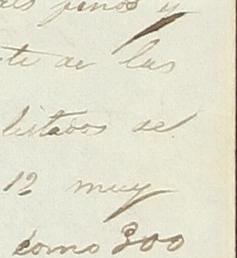 finos y
te de las
listados de
12 muy
como 300